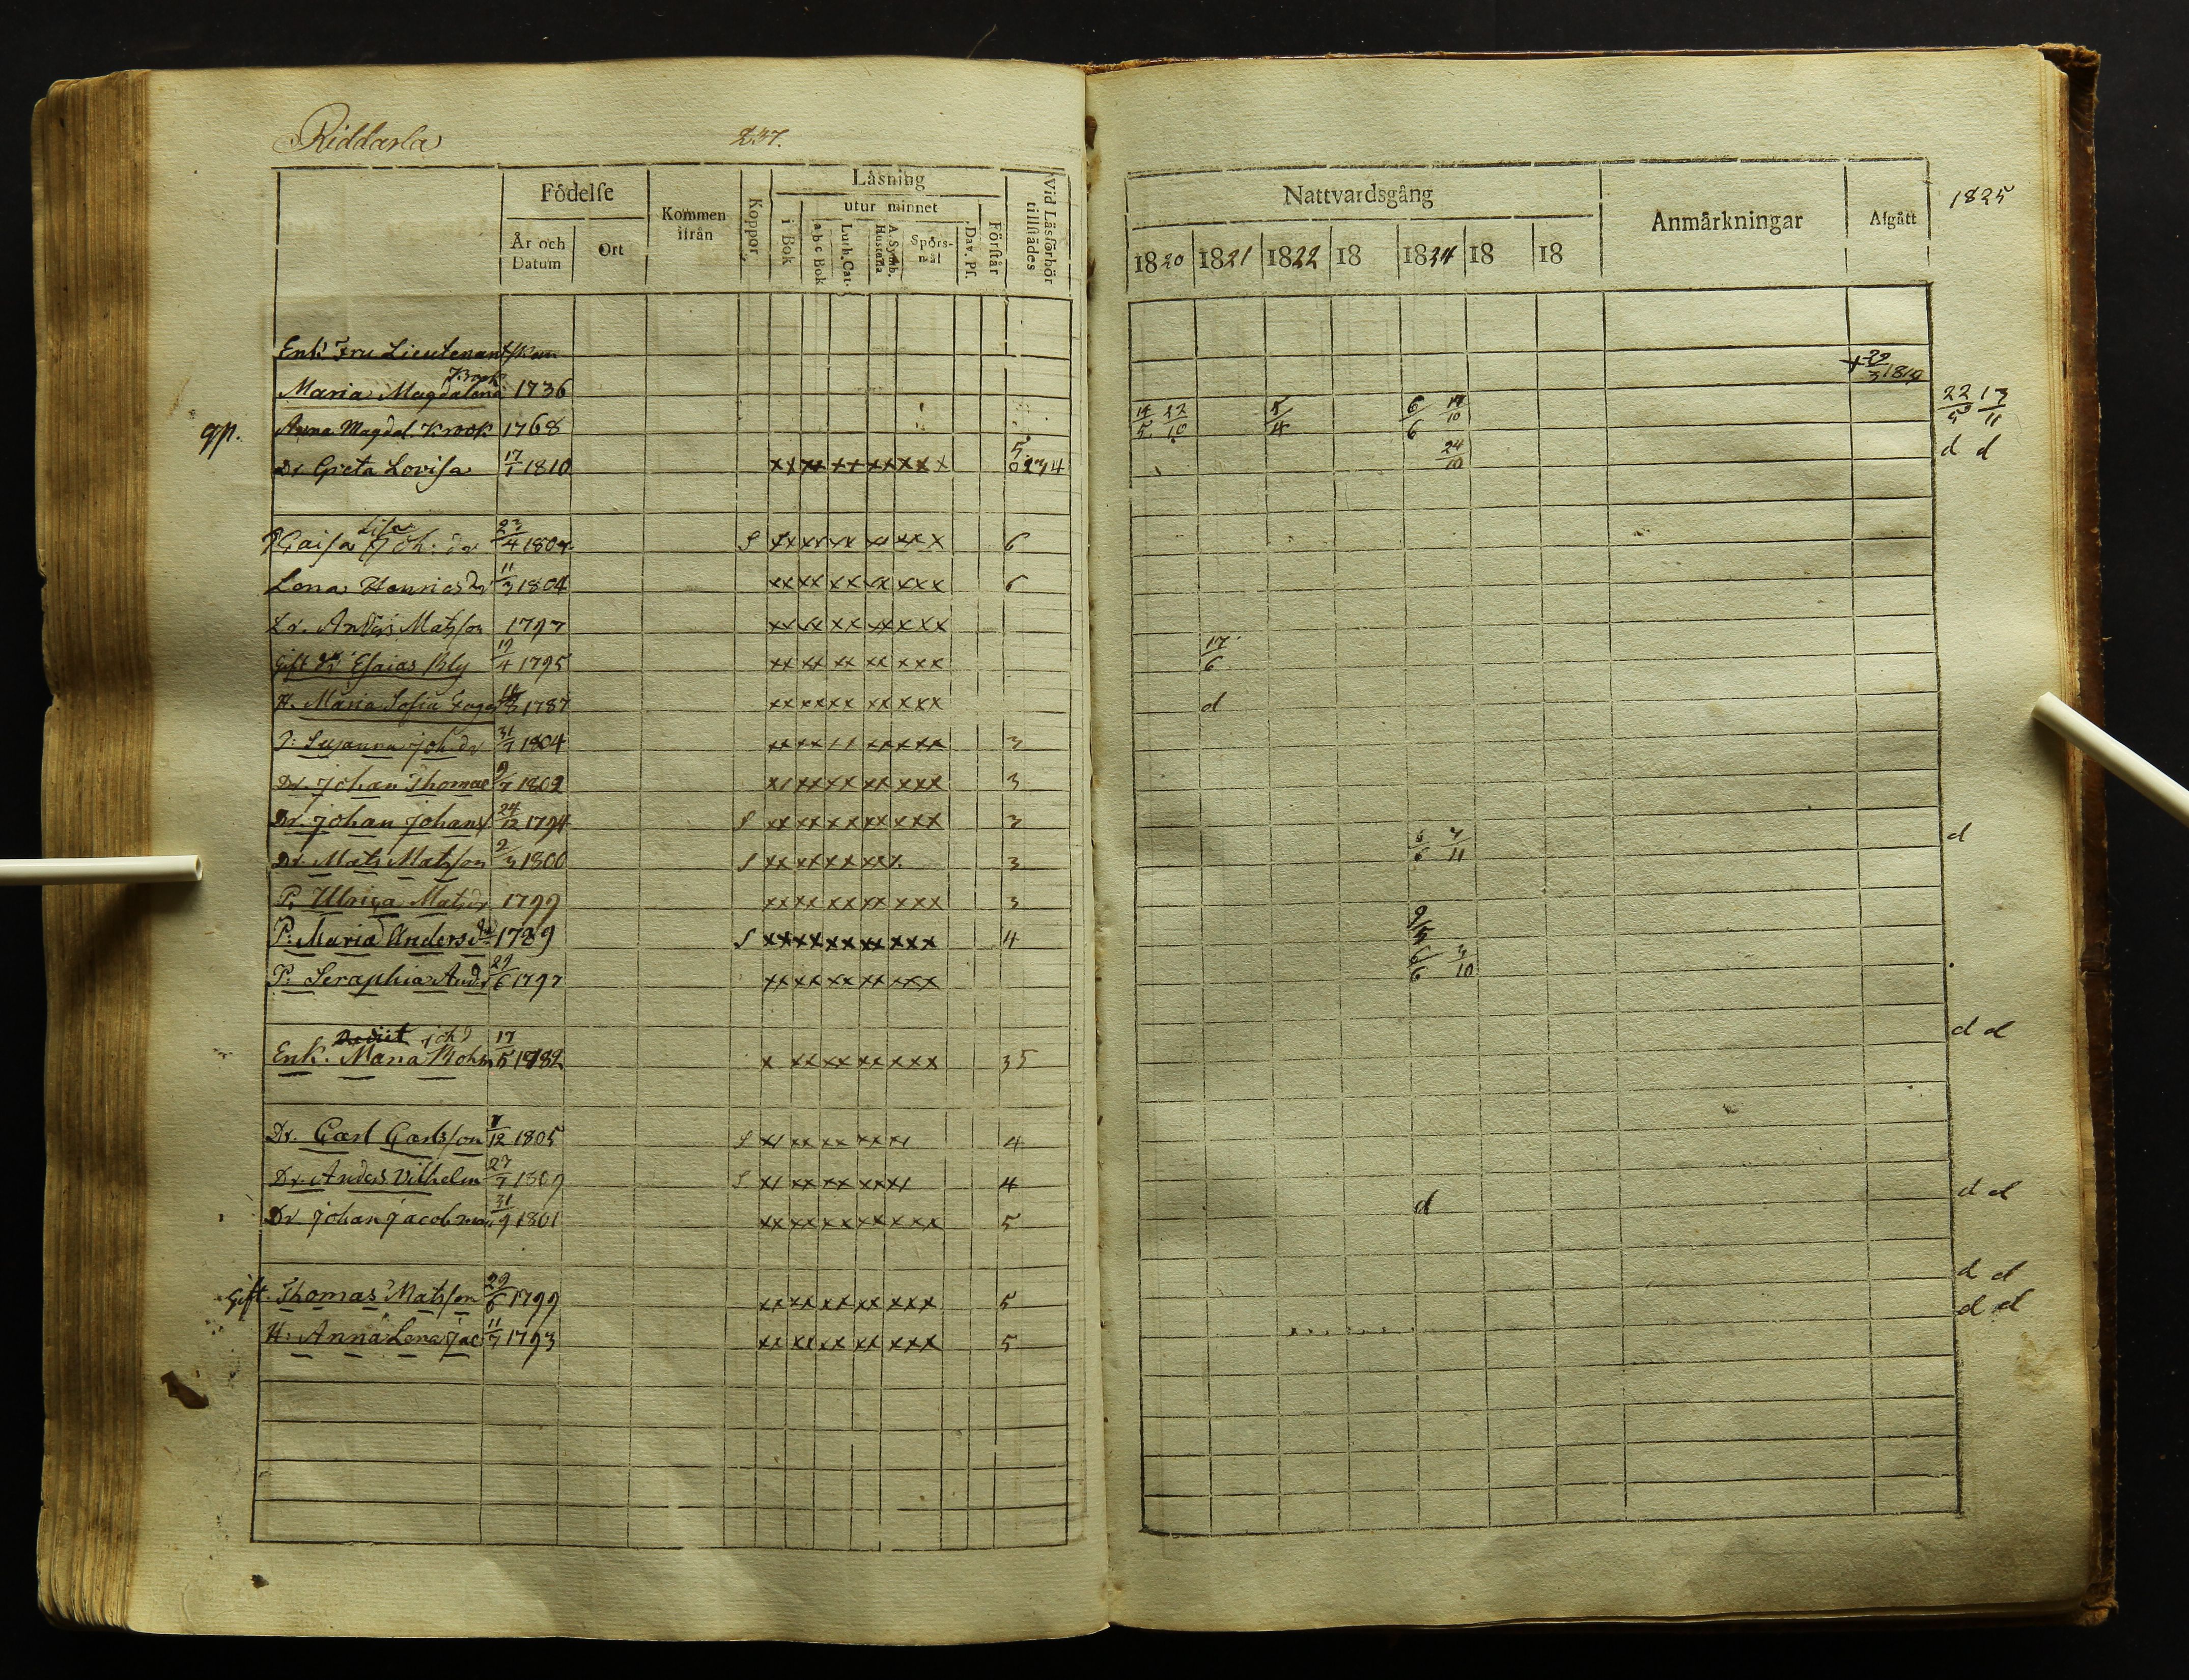 Riddarla 237.
Födelse
År och Datum
Ort
Kommen ifrån
Koppor
Läsning
i Bok
utur minnet
a b c Bok
Luth. Cat.
A. Symb. Hustafla
Spörsmål
Dav. Ps.
Förstår
Vid Läsförhör tillstädes
Nattvardsgång
1820 1821 1822 18 1824 18 18
Anmärkningar
Afgått
1825
Enk. Fru Lieutenant
Maria Magdalena Krook 1736 + 29/3 1819
gp. Anna Magdal. Krook 1768 14/5 22/10 5/4 6/6 17/10 22/5 13/11
Dr Greta Lovisa 17/1 1810 xx xx xx xx xx x x 5 0234 24/10 d d
P Caisa Lisa Joh: dr 23/4 S xx xx xx xx xx x 6
Lena Henricsdr 11/3 1804 xx xx xx xx xxx 6
Dr. Anders Matsson 1797 xx xx xx xx xxx
Gift Esaias Bly 19/4 1795 xx xx xx xx xxx 17/6
H. Maria Sofia 1787 xx xx xx xx xxx d
P: Susanna Joh. dr 31/7 1804 xx xx xx xx xxx 3
Dr. Johan Thomae 9/7 1802 xx xx xx xx xxx 3
Dr Johan Johans 24/12 1794 S xx xx xx xx xxx 3
Dr. Mats Matsson 2/3 1800 S xx xx xx xx x 3 6/6 7/11 d
P. Ulrica Matsdr 1799 xx xx xx xx xxx 3
P: Maria Andersdr 1789 S xx xx xx xx xxx 4 9/5
P: Seraphia And dr 29/6 1797 xx xx xx xx xxx 6/6 3/10
Enk. Maria Johd 17/5 1782 x xx xx xx xxx 35 d d
Dr. Carl Carlsson 1/12 1805 S xx xx xx xx xx 4
Dr. Anders Vilhelm 27/7 1809 S xx xx xx xx xx 4
Dr. Johan Jacobson 31/9 1801 xx xx xx xx xxx 5 d d d
Gift. Thomas Matsson 29/6 1799 xx xx xx xx xxx 5 d d
H. Anna Lena Jac 11/7 1793 xx xx xx xx xxx 5 d d